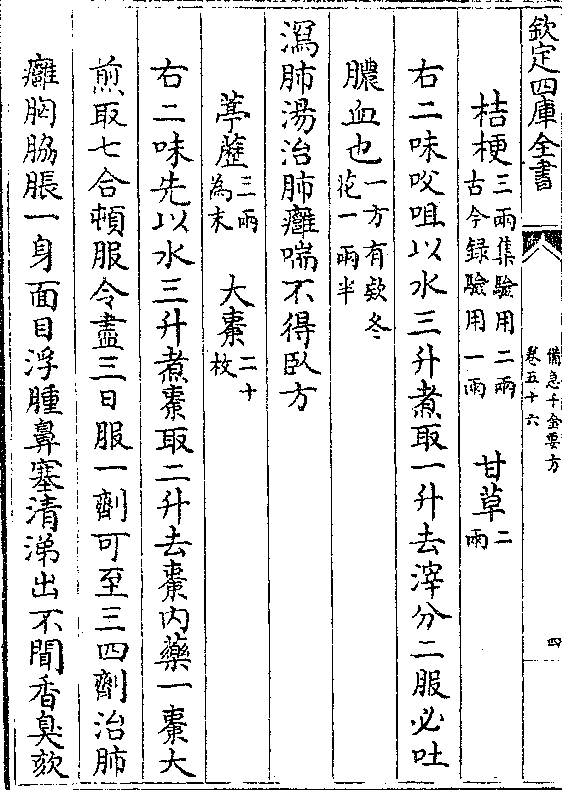 欽定四庫全書
備急千金要方
卷五十六
四
桔梗三兩集驗用二兩古今録驗用一兩 甘草二兩
右二味㕮咀以水三升煮取一升去滓分二服必吐
膿血也一方有欵冬花一兩半
瀉肺湯治肺癰喘不得臥方
葶藶三兩為末 大棗二十枚
右二味先以水三升煮棗取二升去棗内藥一棗大
煎取七合頓服令盡三日服一劑可至三四劑治肺
癰胸脇脹一身面目浮腫鼻塞清涕出不聞香臭欬